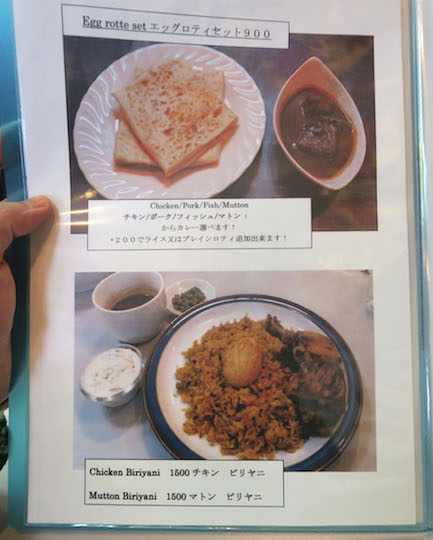 Egg rotte set エッグロティセット９００
Chicken/Pork/Fish/Mutton
チキン/ポーク/フィッシュ/マトン！
からカレー選べます！
+２００でライス又はプレインロティ追加出来ます！
Chicken Biriyani 1500 チキン ビリヤニ
Mutton Biriyani 1500 マトン ビリヤニ